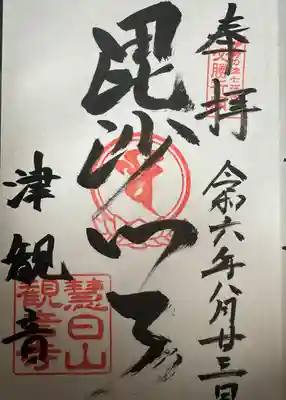 奉拝
令和六年八月廿三日
毘沙門天
津観音
慧日山
観音寺